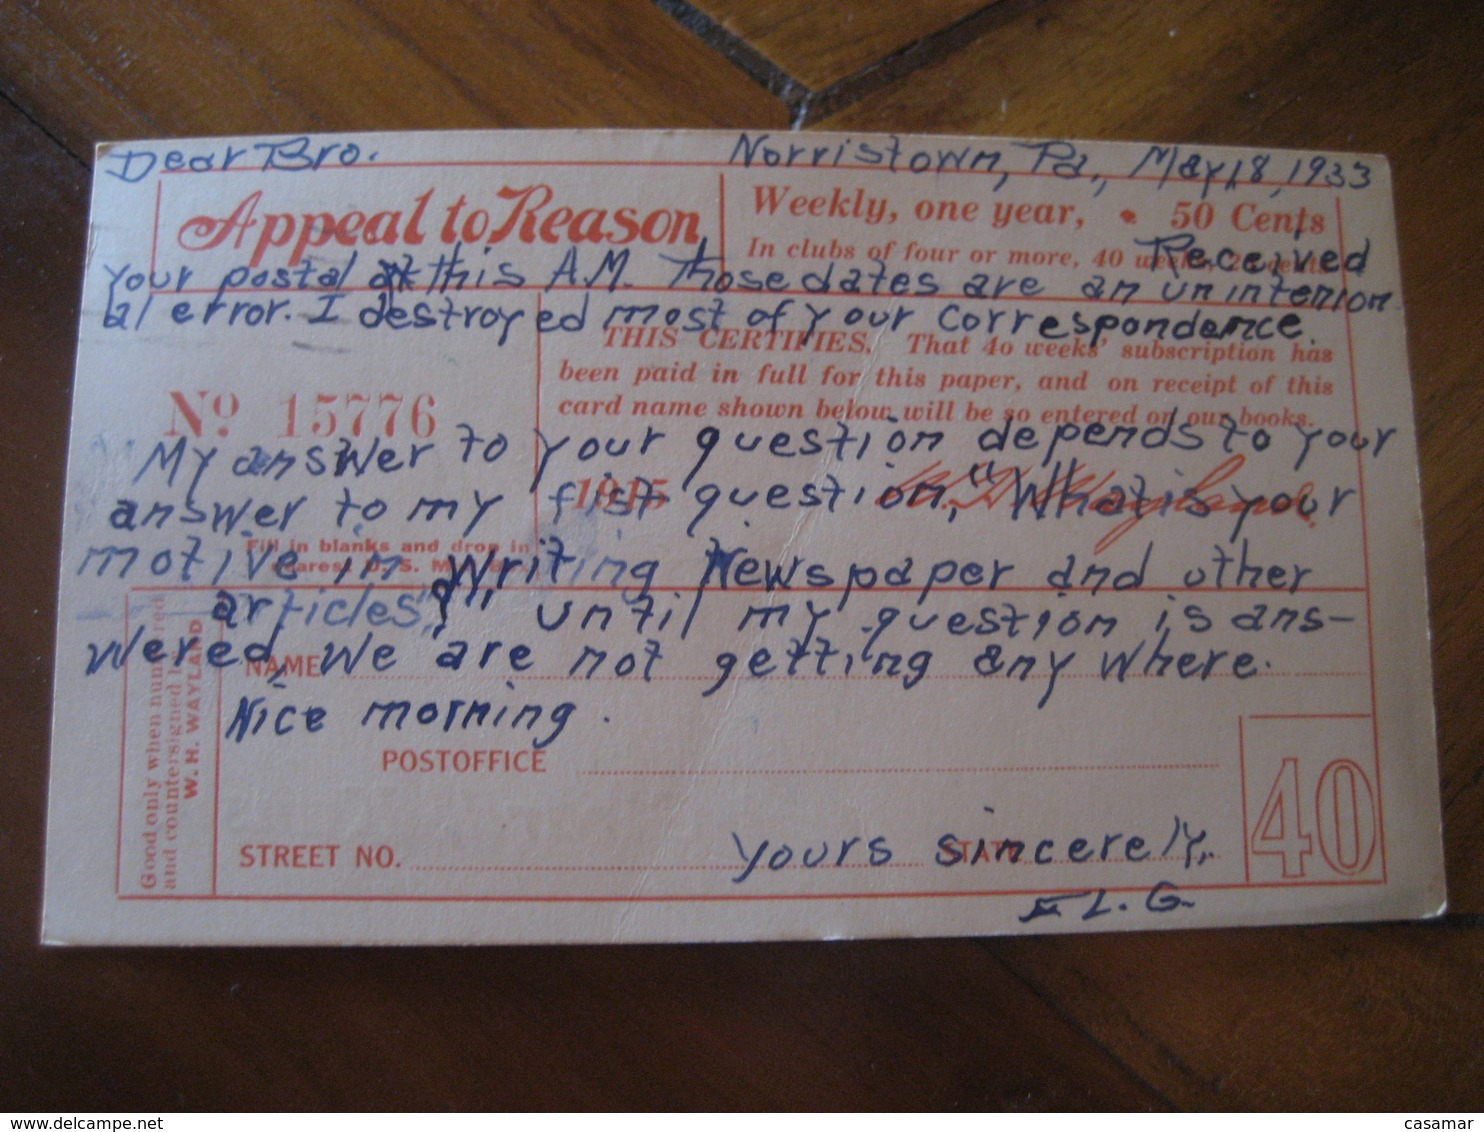 Dear Bro. Norristown, Pa., May, 18, 1933
Appeal to Reason
Weekly, one year, • 50 Cents
In clubs of four or more, 40 cents
Received
your postal this A.M. Those dates are an unintenion
al error. I destroyed most of your correspondance.
THIS CERTIFIES. That 40 weeks' subscription has
been paid in full for this paper, and on receipt of this
card name shown below will be so entered on our books.
No. 15776
My answer to your question depends to your
answer to my fist question, "What is your
1915
motive in writing Newspaper and other
Fill in blanks and drop in
nearest U. S. Mail
articles?" until my question is ans-
wered, we are not getting any where.
NAME
Nice morning.
POSTOFFICE
STREET NO.
STATE
yours sincerely,
E L. G.
40
Good only when numbered
and countersigned
W. H. WAYLAND
casamar